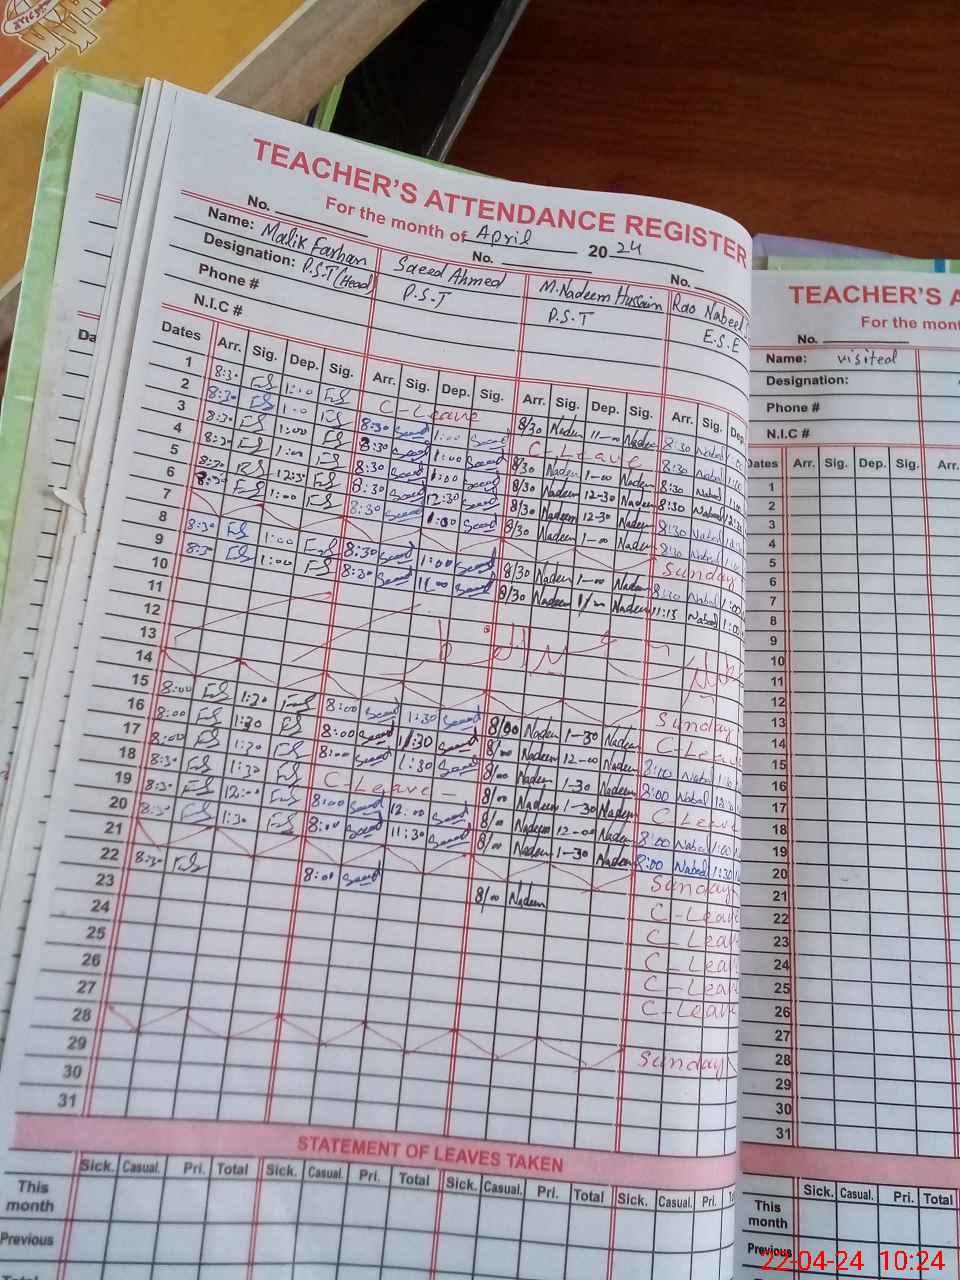 TEACHER'S ATTENDANCE REGISTER
For the month of April 2024
No. No. No.
Name: Malik Farhan Saeed Ahmed M. Nadeem Hussain Rao Nabeel
Designation: P.S.T (Head) P.S.T P.S.T E.S.E
Phone #
N.I.C #
Dates Arr. Sig. Dep. Sig. Arr. Sig. Dep. Sig. Arr. Sig. Dep. Sig. Arr. Sig. Dep
1 8:30 1:00 C-Leave 8/30 Nadeem 11-00 Nadeem 8:30 Nabeel
2 8:30 1:00 8:30 Saeed 1:00 Saeed C-Leave 8:30 Nabeel
3 8:30 1:00 8:30 Saeed 1:00 Saeed 8/30 Nadeem 1-00 Nadeem 8:30 Nabeel
4 8:30 1:00 8:30 Saeed 1:00 Saeed 8/30 Nadeem 12-30 Nadeem 8:30 Nabeel
5 8:30 12:30 8:30 Saeed 12:30 Saeed 8/30 Nadeem 12-30 Nadeem 8:30 Nabeel
6 8:30 1:00 8:30 Saeed 1:00 Saeed 8/30 Nadeem 1-00 Nadeem 8:30 Nabeel
7 Sunday
8 8:30 1:00 8:30 Saeed 1:00 Saeed 8/30 Nadeem 1-00 Nadeem 8:30 Nabeel 1:00
9 8:30 1:00 8:30 Saeed 11:00 Saeed 8/30 Nadeem 1/00 Nadeem 11:15 Nabeel 1:00
10
11
12
13
14 Sunday
15 8:00 1:30 8:00 Saeed 1:30 Saeed 8/00 Nadeem 1-30 Nadeem C-Leave
16 8:00 1:30 8:00 Saeed 11:30 Saeed 8/00 Nadeem 12-00 Nadeem 8:10 Nabeel
17 8:00 1:30 8:00 Saeed 1:30 Saeed 8/00 Nadeem 1-30 Nadeem 8:00 Nabeel
18 8:30 1:30 C-Leave - 8/00 Nadeem 1-30 Nadeem C Leave
19 8:30 12:00 8:00 Saeed 12:00 Saeed 8/00 Nadeem 12-00 Nadeem 8:00 Nabeel 1:00
20 8:30 1:30 8:00 Saeed 11:30 Saeed 8/00 Nadeem 1-30 Nadeem 8:00 Nabeel 1:30
21 Sunday
22 8:30 8:00 Saeed 8/00 Nadeem C-Leave
23 C-Leav
24 C-Leav
25 C-Leav
26 C-Leav
27
28 Sunday
29
30
31
STATEMENT OF LEAVES TAKEN
Sick. Casual. Pri. Total Sick. Casual. Pri. Total Sick. Casual. Pri. Total Sick. Casual. Pri.
This month
Previous
TEACHER'S A
For the mont
No.
Name: visited
Designation:
Phone #
N.I.C #
Dates Arr. Sig. Dep. Sig. Arr.
1
2
3
4
5
6
7
8
9
10
11
12
13
14
15
16
17
18
19
20
21
22
23
24
25
26
27
28
29
30
31
Sick. Casual. Pri. Total
This month
Previous
22-04-24 10:24